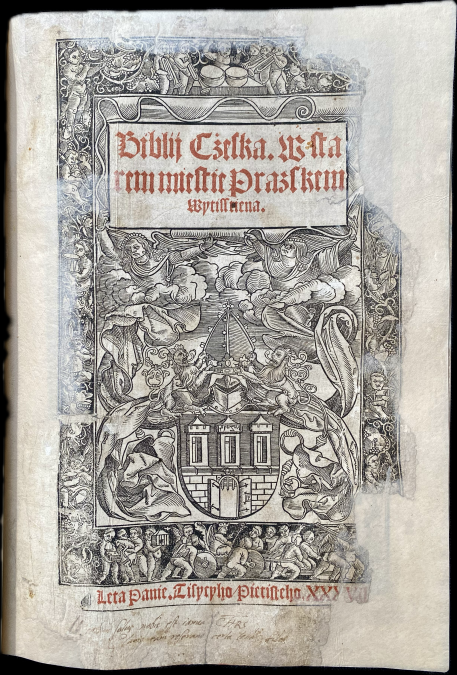 Biblij Cžeſka. W Sta
rem mieſtie Pražſkem
Wytiſſtiena.
Leta Panie. Tiſycyho Pietiſteho. XXXVII